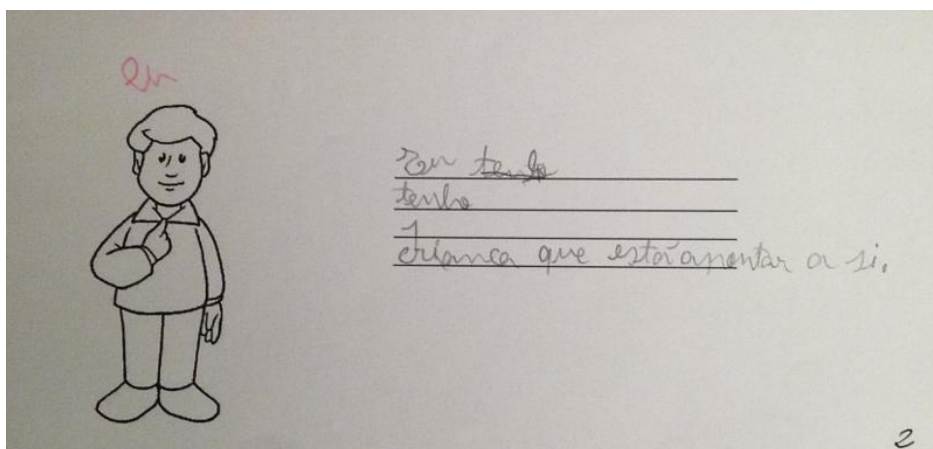 eu
Eu tenho
tenho
1
criança que está a apontar a si.
2